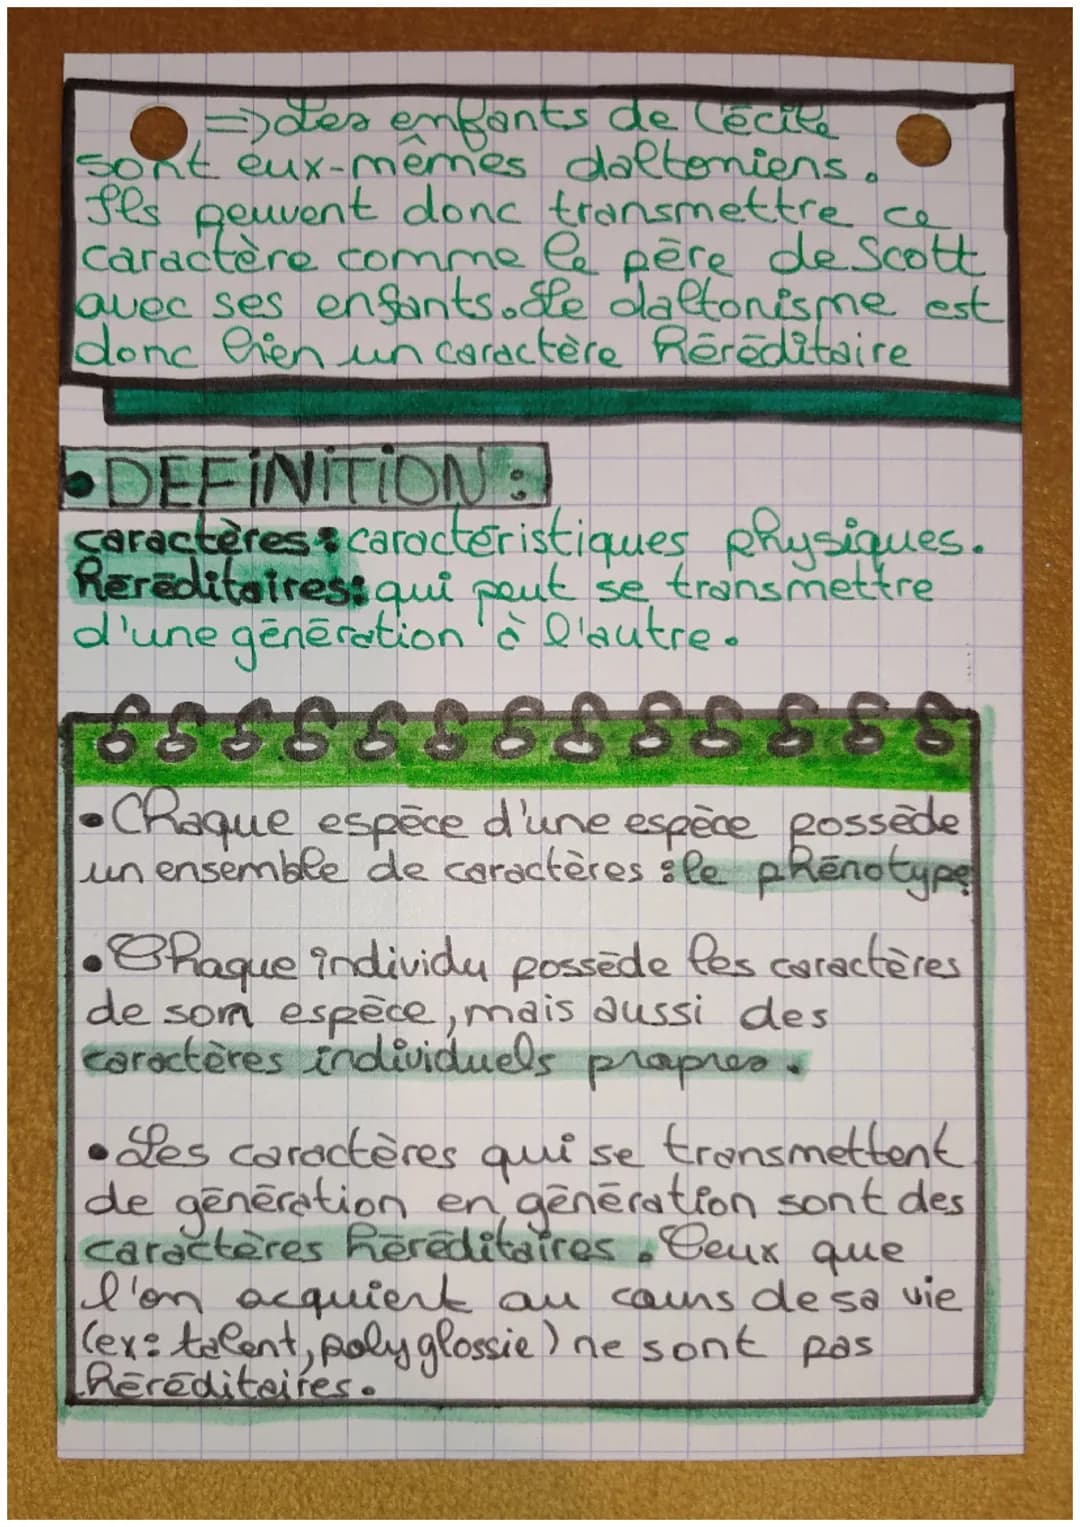 => Les enfants de Cécile
sont eux-mêmes daltoniens.
Ils peuvent donc transmettre ce
caractère comme le père de Scott
avec ses enfants. Le daltonisme est
donc bien un caractère héréditaire
• DEFINITION :
caractères : caractéristiques physiques.
héréditaires : qui peut se transmettre
d'une génération à l'autre.
• Chaque espèce d'une espèce possède
un ensemble de caractères : le phénotype
• Chaque individu possède les caractères
de son espèce, mais aussi des
caractères individuels propres.
• Les caractères qui se transmettent
de génération en génération sont des
caractères héréditaires. Ceux que
l'on acquiert au cours de sa vie
(ex : talent, polyglossie) ne sont pas
héréditaires.